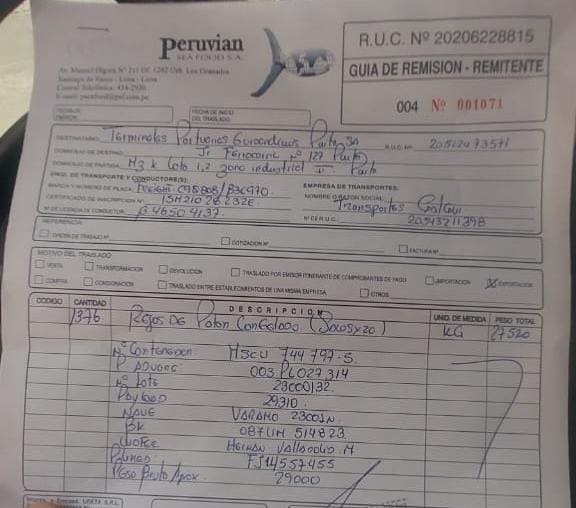 Peruvian
SEA FOOD S.A.
Av. Manuel Olguin Nº 211 Of. 1202 Urb. Los Granados
Santiago de Surco - Lima - Lima
Central Telefónica: 434-2930
R.U.C. Nº 20206228815
GUIA DE REMISION - REMITENTE
004 Nº 001071
FECHA DE EMISION
FECHA DE INICIO DEL TRASLADO
DESTINATARIO: Terminales Portuarios Euroandinos Paita SA R.U.C. Nº
DOMICILIO DE DESTINO: Jr Ferrocarril Nº 127 Paita
DOMICILIO DE PARTIDA: Mz K Lote 1,2 zona industrial II Paita
UNID. DE TRANSPORTE Y CONDUCTOR(ES): EMPRESA DE TRANSPORTES:
MARCA Y NUMERO DE PLACA: B3C970 NOMBRE O RAZON SOCIAL: Transportes
CERTIFICADO DE INSCRIPCION Nº
Nº DE LICENCIA DE CONDUCTOR: B 46504137 Nº DE R.U.C. 20543211398
REFERENCIA
ORDEN DE TRABAJO Nº COTIZACION Nº FACTURA Nº
MOTIVO DEL TRASLADO
VENTA TRANSFORMACION DEVOLUCION TRASLADO POR EMISOR ITINERANTE DE COMPROBANTES DE PAGO IMPORTACION EXPORTACION
COMPRA CONSIGNACION TRASLADO ENTRE ESTABLECIMIENTOS DE UNA MISMA EMPRESA OTROS
CODIGO CANTIDAD DESCRIPCION UNID. DE MEDIDA PESO TOTAL
1376 Rejos De Poton Congelado (Sacosx20) KG 27520
Nº Contenedor: HSCU 744 797-5.
P. Aduana: 003 PL027314
Nº Lote 23000132.
Payload 29310.
Nave VARAMO 23001N.
BK 087LIM 514823
Chofer Hernan Valladolid M
FJ14557455
Peso Bruto Aprox. 29000